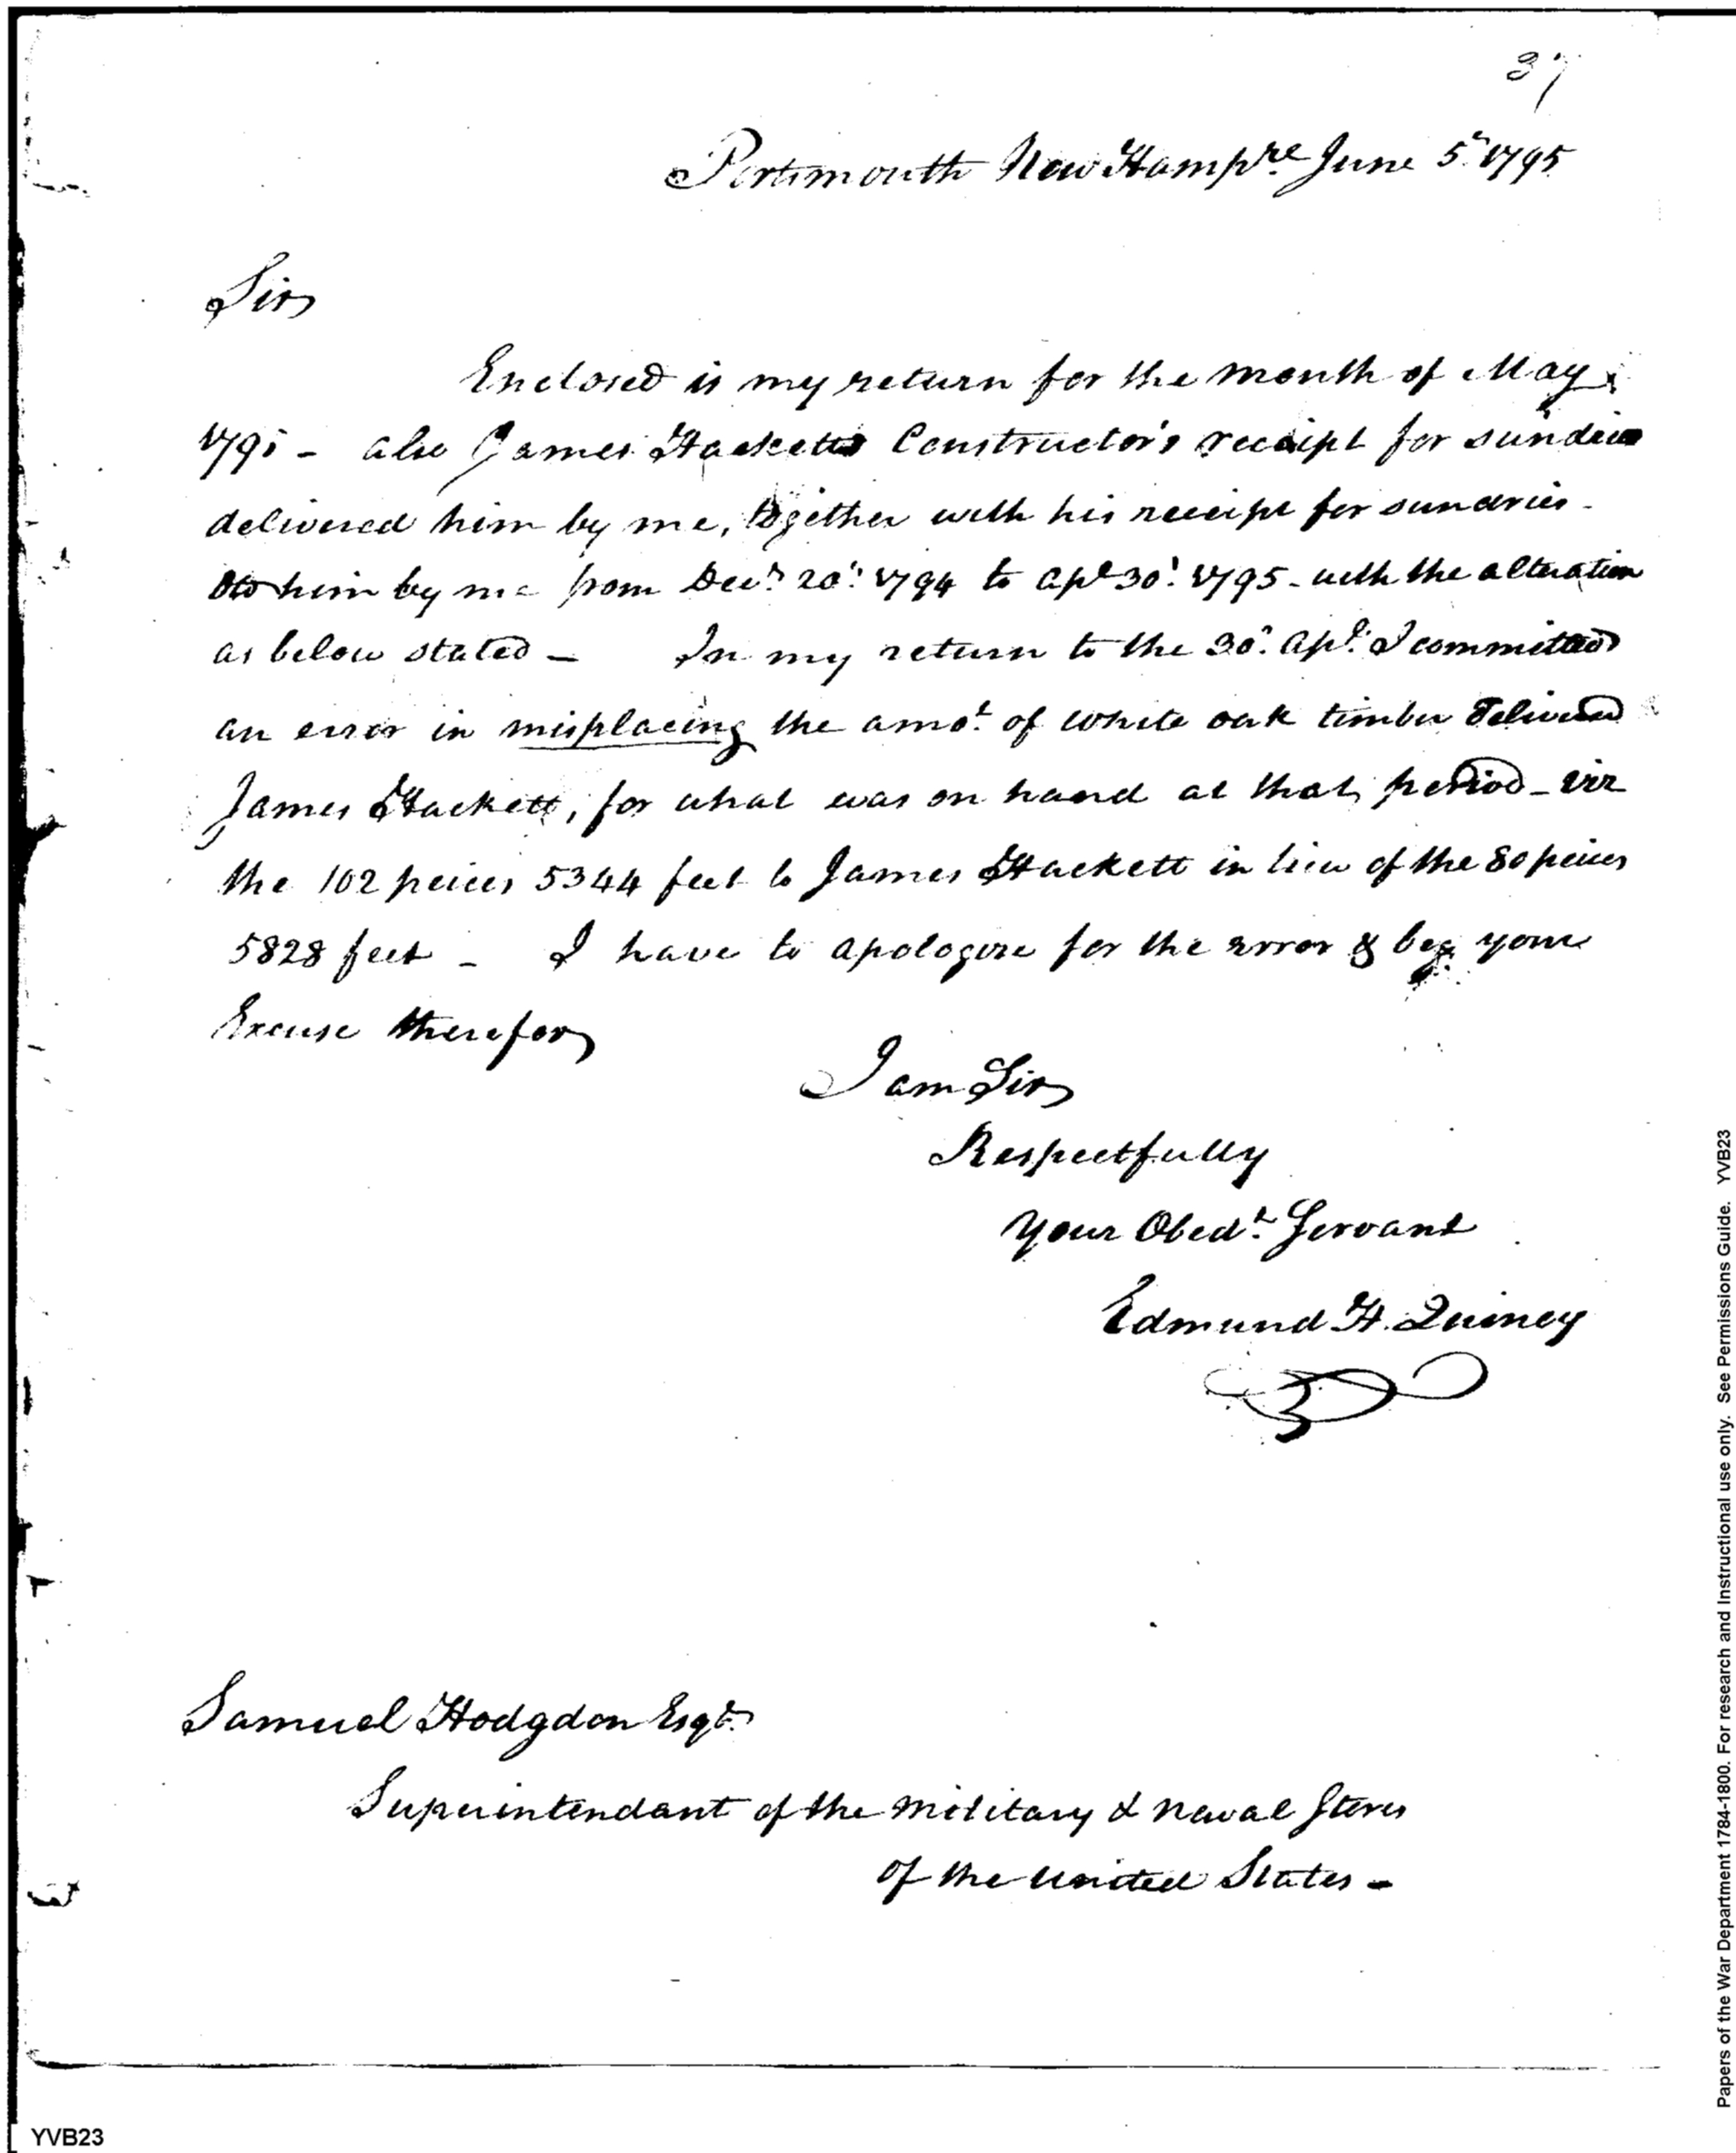 37
Portsmouth New Hampre June 5th 1795
Sir
Enclosed is my return for the month of May
1795 - also James Hacketts Constructor's receipt for sundries
delivered him by me, together with his receipt for sundries -
to him by me from Decr 20th 1794 to Apl 30th 1795 - with the alteration
as below stated - In my return to the 30th Apl I committed
an error in misplacing the amot of white oak timber delivered
James Hackett, for what was on hand at that period - viz
the 102 peices 5344 feet to James Hackett in lieu of the 80 peices
5828 feet - I have to apologize for the error & beg your
Excuse therefor
I am Sir
Respectfully
Your Obedt Servant
Edmund H. Quincy
Samuel Hodgdon Esqr
Superintendant of the military & naval Stores
of the United States -
YVB23
Papers of the War Department 1784-1800. For research and Instructional use only. See Permissions Guide. YVB23